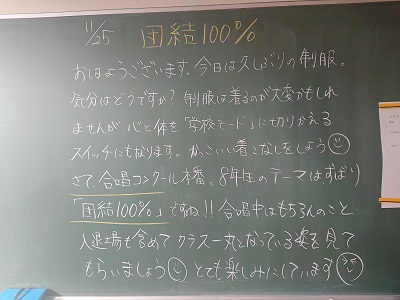 11/25 団結100%
おはようございます。今日は久しぶりの制服。
気分はどうですか？制服は着るのが大変かもしれ
ませんが心と体を「学校モード」に切りかえる
スイッチにもなります。かっこいい着こなしをしよう
さて、合唱コンクール本番。8年生のテーマはずばり
「団結100%」ですね!!合唱中はもちろんのこと
入退場も含めてクラス一丸となっている姿を見て
もらいましょう とても楽しみにしています